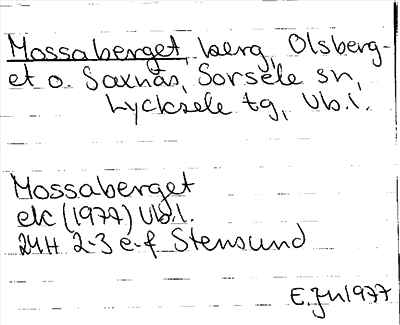 Mossaberget, berg, Olsberg-
et o. Saxnäs, Sorsele sn,
Lycksele tg, Vb.l.
Mossaberget
ek (1977) Vb.l.
24H 2-3 e-f Stensund
E. Jn 1977